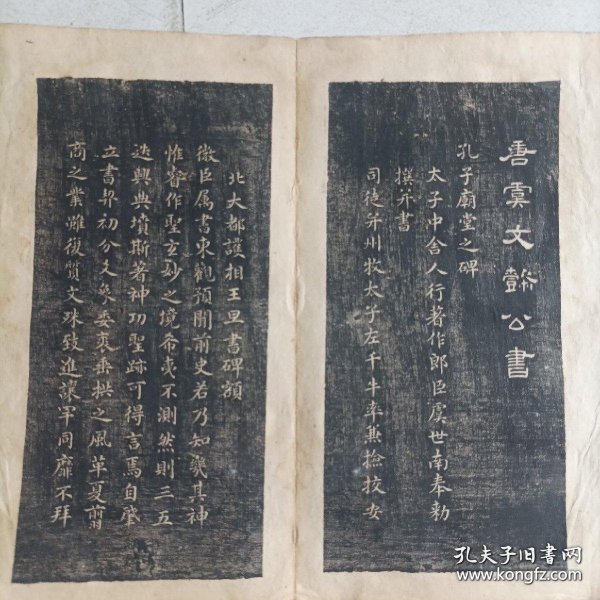 唐虞文懿公書
孔子廟堂之碑
太子中舍人行著作郎臣虞世南奉勅
撰并書
司徒并州牧太子左千牛率兼撿挍安
北大都護相王旦書碑額
微臣属書東觀預聞前史若乃知幾其神
惟睿作聖玄妙之境希夷不測然則三五
迭興典墳斯著神功聖跡可得言焉自肇
立書契初分爻象委裘垂拱之風革夏翦
商之業雖復質文殊致進讓罕同靡不拜
孔夫子旧书网
www.kongfz.com